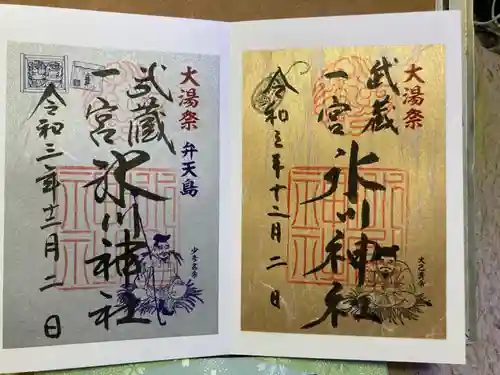 大湯祭
武蔵
一宮
氷川神社
令和三年十二月二日
大己貴命
大湯祭 弁天島
武蔵
一宮
氷川神社
令和三年十二月二日
少彦名命